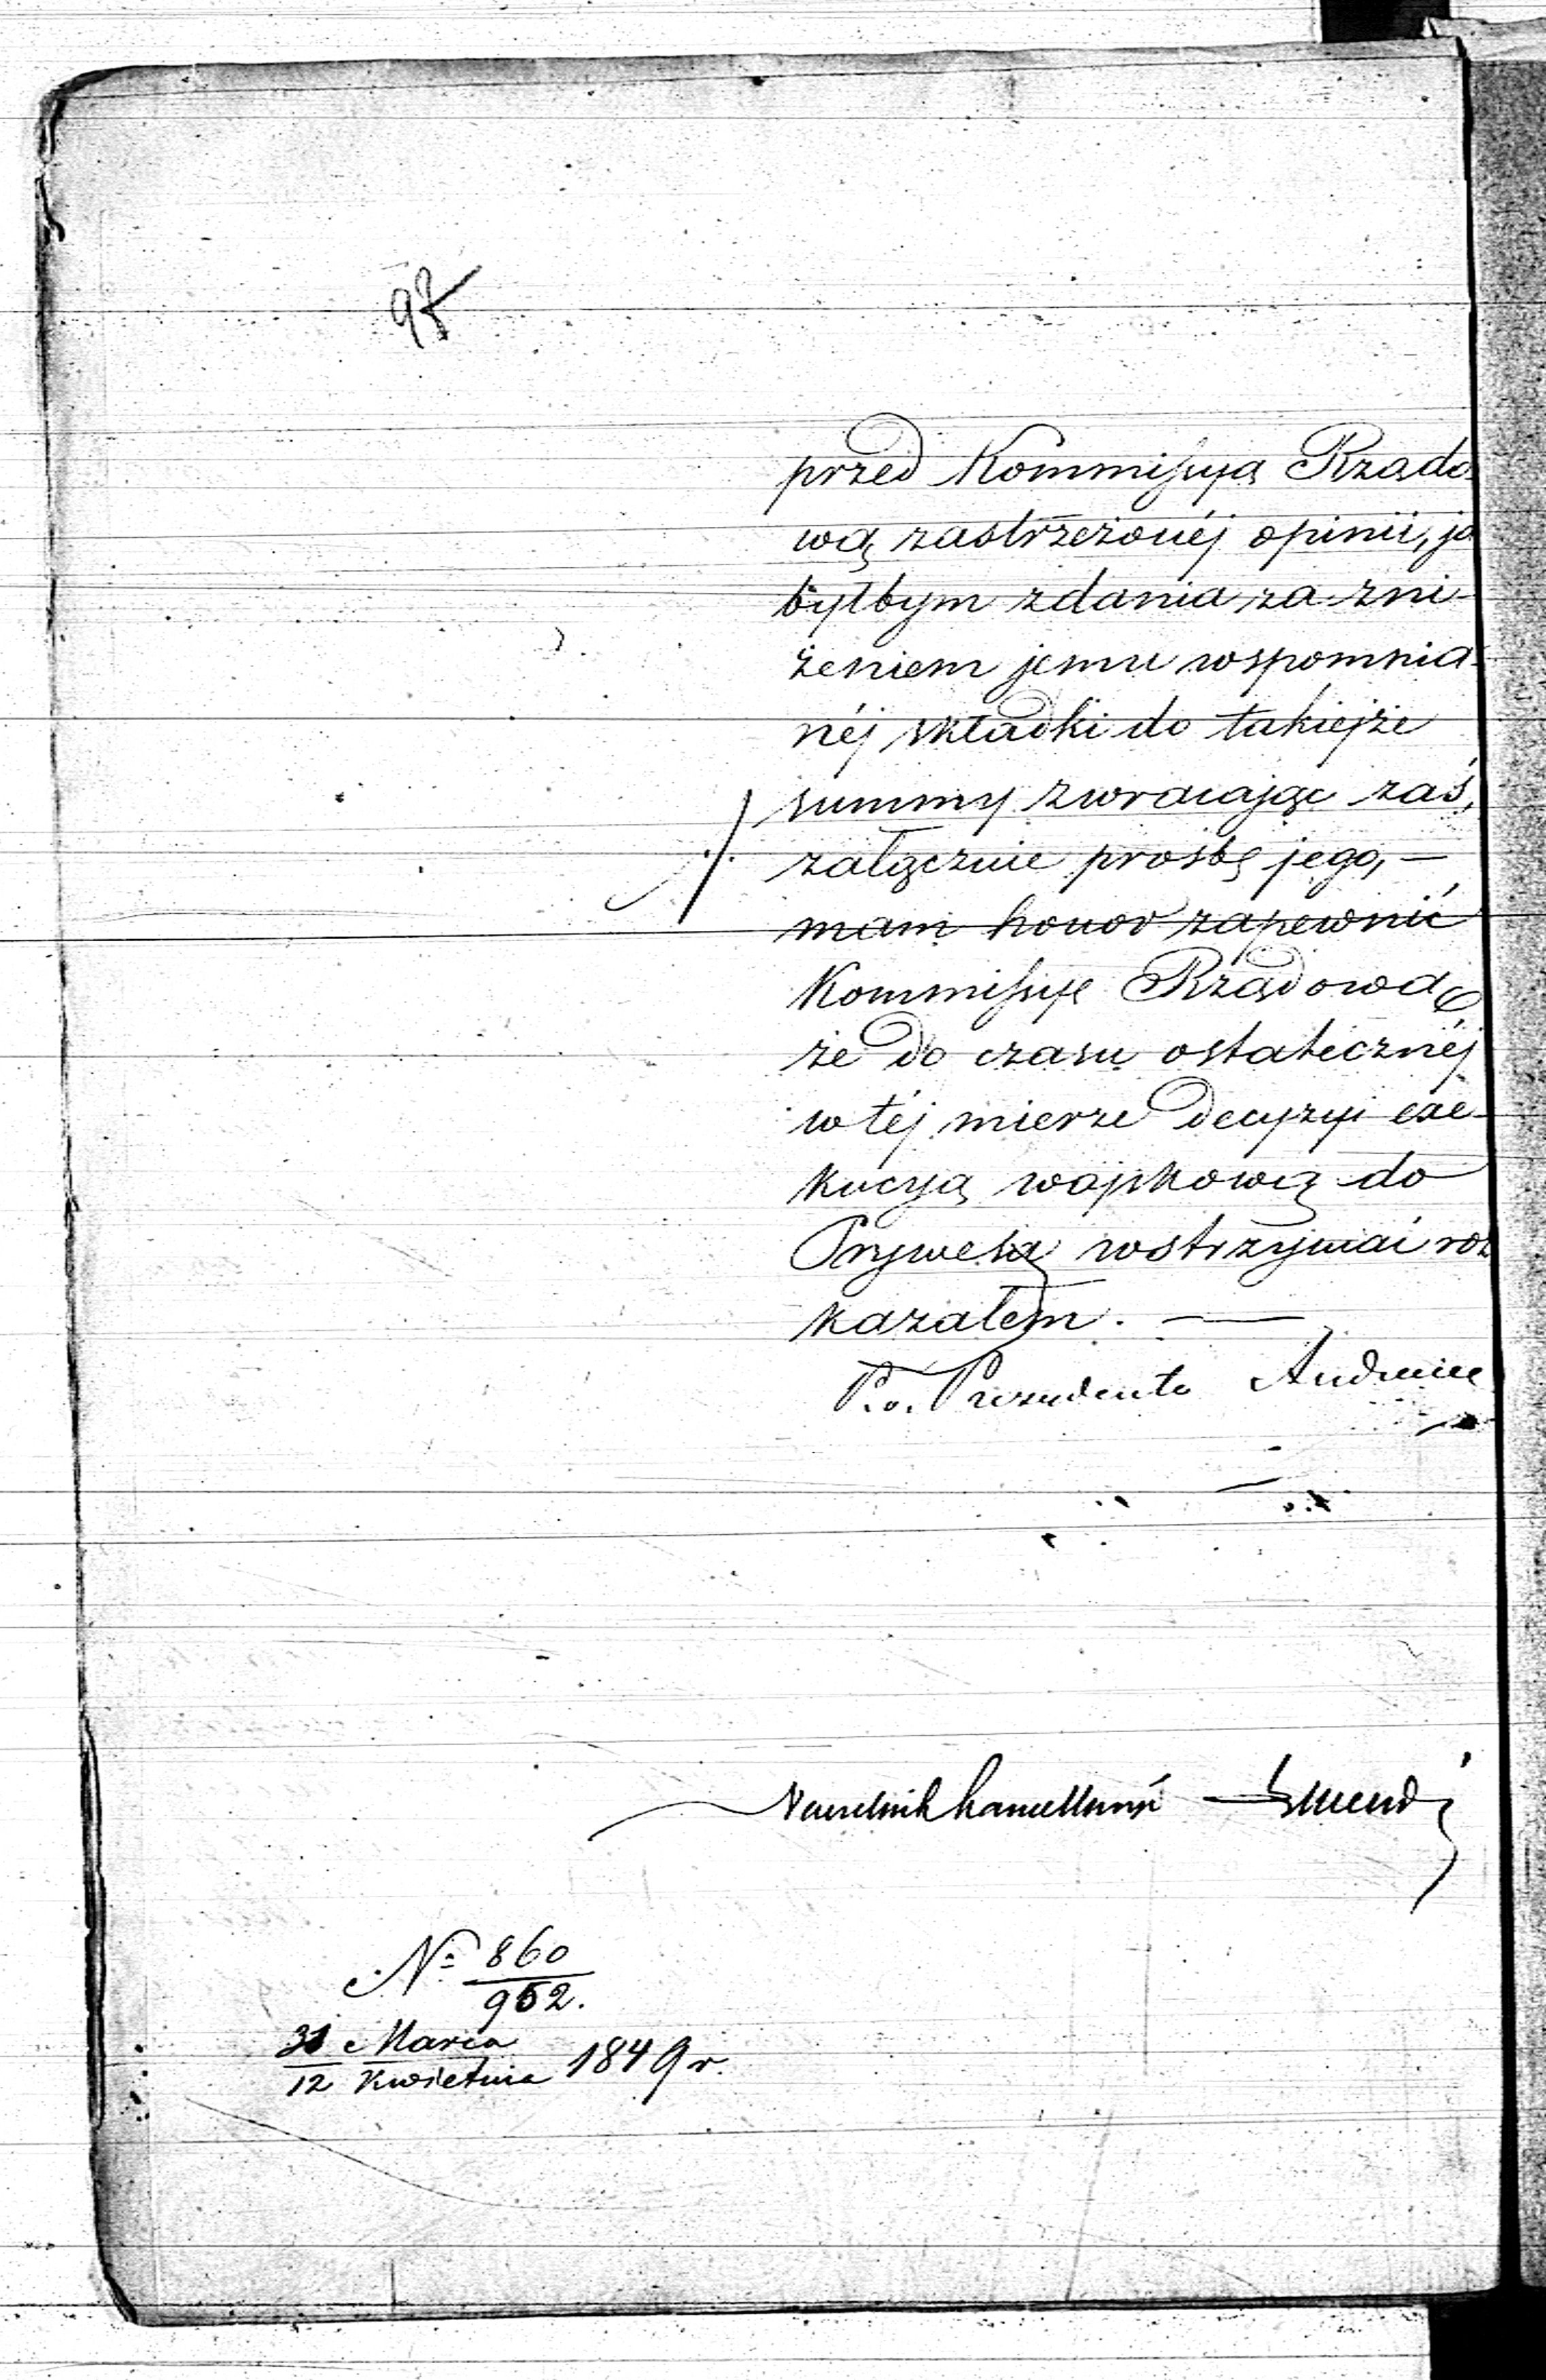 98
przed Kommissyą Rządo-
wą zastrzeżonéj opinii, ja
byłbym zdania za zni-
żeniem jemu wspomnia-
néj składki do takiejże
summy zwracając zaś,
załącznie prośbę jego, —
mam honor zapewnić
Kommissyę Rządową
że do czasu ostatecznéj
w téj mierze decyzyi exe-
kucyą wojskową do
Prywesa wstrzymać roz
kazałem. —
P. o. Prezydenta
Naczelnik Kancellaryi
№ 860
952.
31 Marca
12 Kwietnia 1849 r.